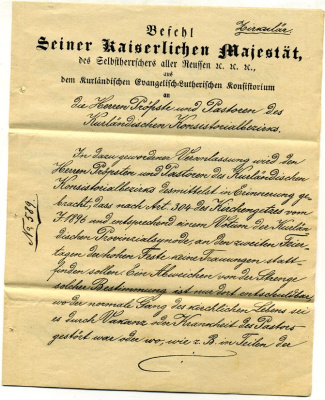 Zirkulär.
Befehl
Seiner Kaiserlichen Majestät,
des Selbstherrschers aller Reussen ꝛc. ꝛc. ꝛc.,
aus
dem Kurländischen Evangelisch-Lutherischen Konsistorium
an
die Herren Pröpste und Pastoren des
Kurländischen Konsistorialbezirks.
In dazu gewordener Veranlassung wird den
Herren Pröpsten und Pastoren des Kurländischen
Konsistorialbezirks desmittelst in Erinnerung ge-
bracht, dass nach Art. 304 des Kirchengesetzes vom
J 1896 und entsprechend einem Votum der Kurlän-
dischen Provinzialsynode, an den zweiten Feier-
tagen der hohen Feste keine Trauungen statt-
finden sollen. Ein Abweichen von der Strenge
solcher Bestimmung ist nur dort entschuldbar,
wo der normale Gang des kirchlichen Lebens sei
es durch Vakanz oder Krankheit des Pastors
gestört war oder wo, wie z. B. in Teilen der
№ 589.